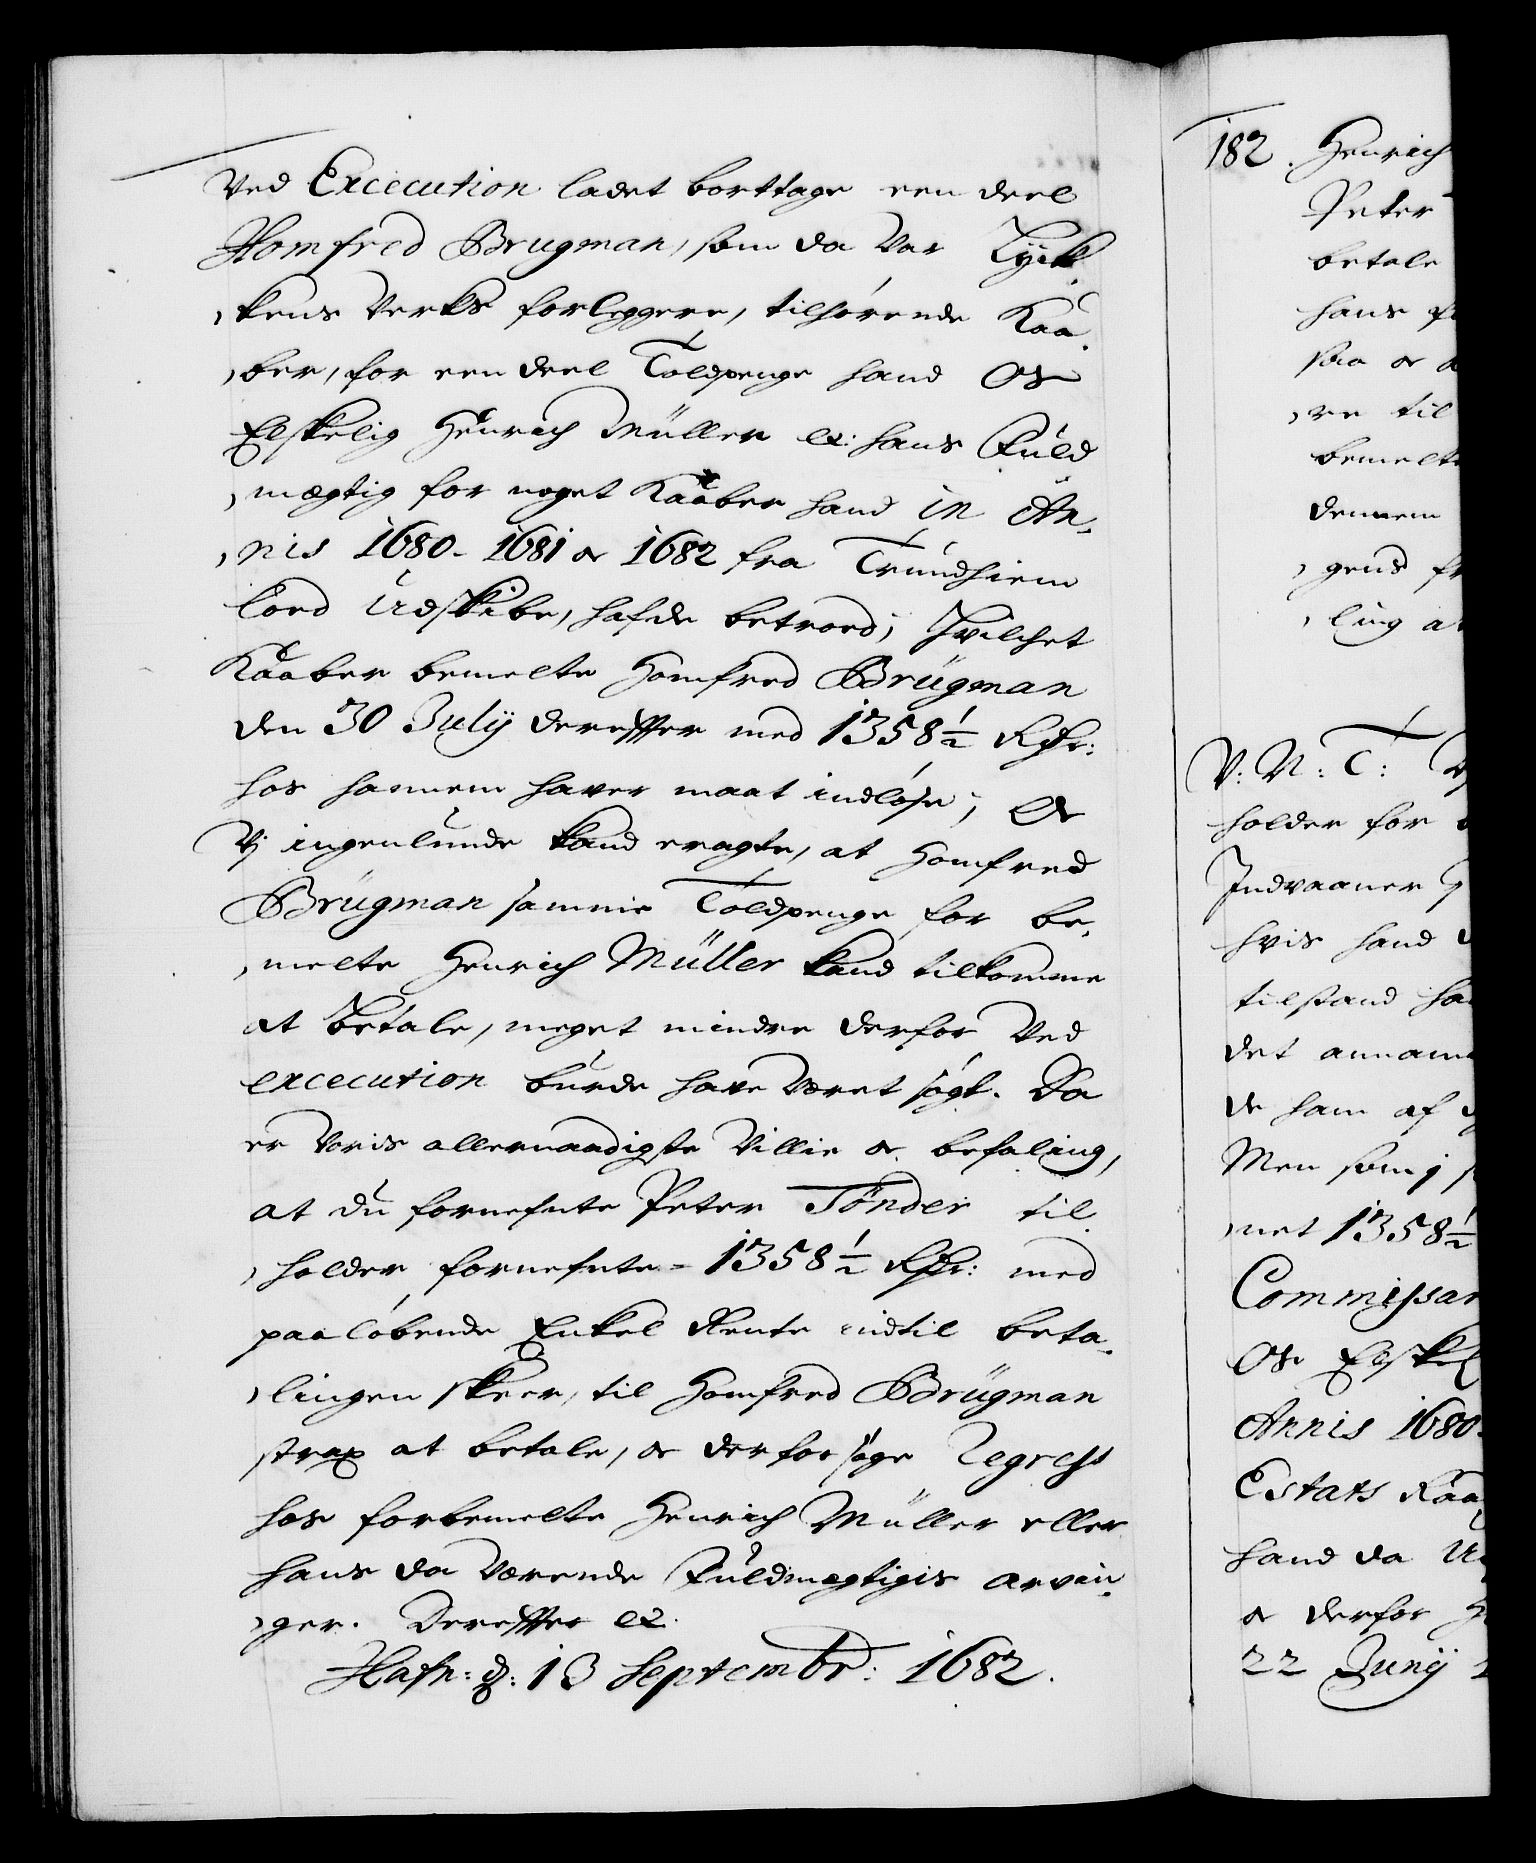 Ved Excecution ladet borttage een deel
Homfred Brugman, som da Var Lyck
kens Verks forleggere, tilhørende Kaa
ber, for een deel Toldpenge hand Os
Elskelig Henrich Müller etc: hans Fuld
mægtig for noget Kaaber hand in An
nis 1680. 1681 oc 1682 fra Trundhiem
loed Udskibe, hafde betroed; Hvilchet
Kaaber bemelte Homfred Brügman
den 30 Julij dereffter med 1358½ Rdr:
hos hannem haver maat indløse; Oc
Vj ingenlunde kand eragte, at Homfred
Brügman samme Toldpenge for be
melte Henrich Müller kand tilkomme
at betale, meget mindre derfor Ved
excecution burde have Været søgt. Da
er Voris allernaadigste Villie oc befaling,
at du fornefnte Peter Tønder til
holder fornefnte 1358½ Rdr: med
paaløbende Enkel Rente indtil beta
lingen skeer, til Homfred Brügman
strax at betale, oc derfor søge Regress
hos forbemelte Henrich Müller eller
hans da Værende Fuldmægtigis arvin
ger. Dereffter etc.
Hafn: d: 13 Septembr: 1682.
182. Henrich
Peter
betale
hans
saa oc
re til
bemelte
dennem
gend
ling
V: N: T:
holder for
Indvaaner
hvis hand
tilstand
det annam
de ham af
Men som j
net 1358½
Commissar
Os Elskel
Annis 1680.
Estats Raa
hand da
oc derfor
22 Junij